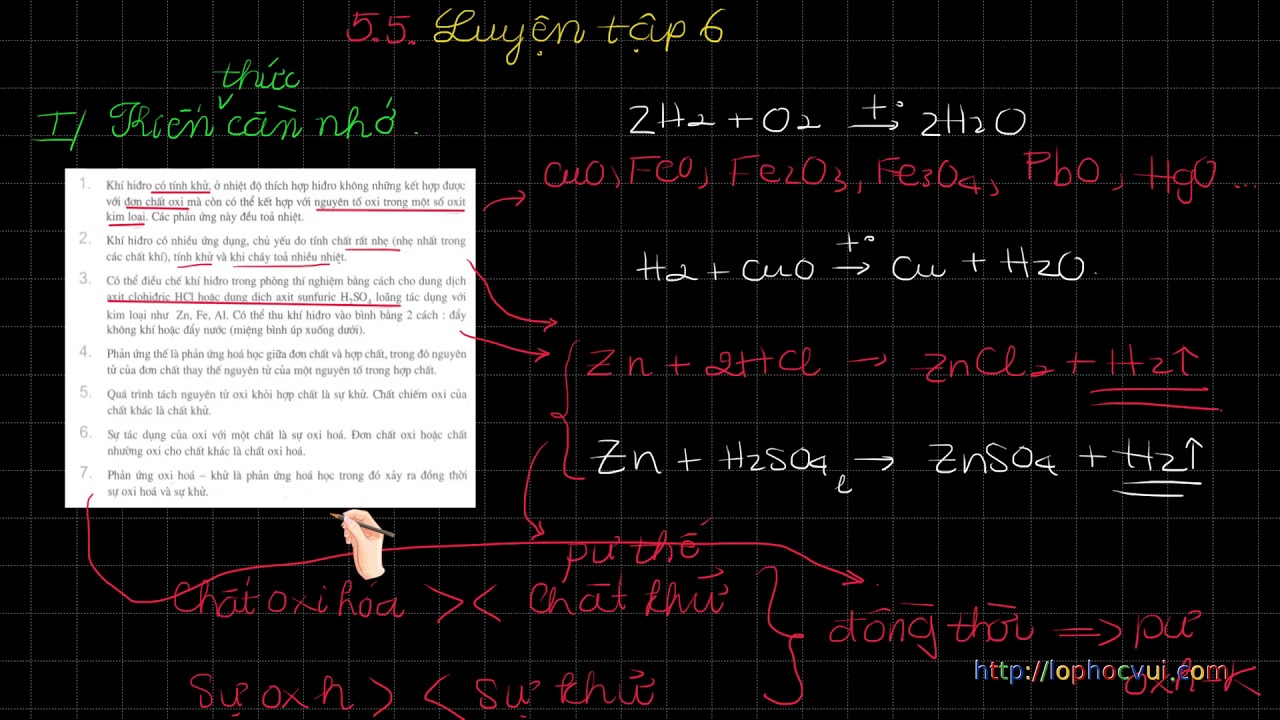 5.5. Luyện tập 6
thức
I/ Kiến cần nhớ.
1. Khí hiđro có tính khử, ở nhiệt độ thích hợp hiđro không những kết hợp được
với đơn chất oxi mà còn có thể kết hợp với nguyên tố oxi trong một số oxit
kim loại. Các phản ứng này đều toả nhiệt.
2. Khí hiđro có nhiều ứng dụng, chủ yếu do tính chất rất nhẹ (nhẹ nhất trong
các chất khí), tính khử và khi cháy toả nhiều nhiệt.
3. Có thể điều chế khí hiđro trong phòng thí nghiệm bằng cách cho dung dịch
axit clohiđric HCl hoặc dung dịch axit sunfuric H₂SO₄ loãng tác dụng với
kim loại như Zn, Fe, Al. Có thể thu khí hiđro vào bình bằng 2 cách : đẩy
không khí hoặc đẩy nước (miệng bình úp xuống dưới).
4. Phản ứng thế là phản ứng hoá học giữa đơn chất và hợp chất, trong đó nguyên
tử của đơn chất thay thế nguyên tử của một nguyên tố trong hợp chất.
5. Quá trình tách nguyên tử oxi khỏi hợp chất là sự khử. Chất chiếm oxi của
chất khác là chất khử.
6. Sự tác dụng của oxi với một chất là sự oxi hoá. Đơn chất oxi hoặc chất
nhường oxi cho chất khác là chất oxi hoá.
7. Phản ứng oxi hoá – khử là phản ứng hoá học trong đó xảy ra đồng thời
sự oxi hoá và sự khử.
2H2 + O2 →t° 2H2O
CuO, FeO, Fe2O3, Fe3O4, PbO, HgO ...
H2 + CuO →t° Cu + H2O.
Zn + 2HCl → ZnCl2 + H2↑
Zn + H2SO4 l → ZnSO4 + H2↑
pư thế
Chất oxi hóa >< Chất khử
Sự oxh >< Sự khử
đồng thời => pư
oxh-K
http://lophocvui.com